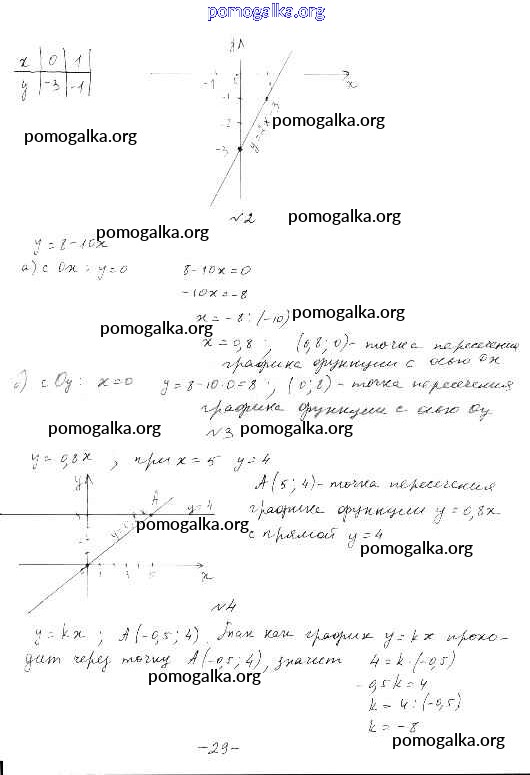 pomogalka.org
x 0 1
y -3 -1
y
-1 0
x
-1
-2
-3
y=2x-3
pomogalka.org
pomogalka.org
№2
pomogalka.org
pomogalka.org
y = 8-10x
а) с Ox: y=0 8-10x=0
-10x=-8
pomogalka.org
x = -8 : (-10)
pomogalka.org
x = 0,8 ; (0,8; 0) - точка пересечения
графика функции с осью Ox
б) с Oy: x=0 y = 8-10·0=8 ; (0; 8) - точка пересечения
графика функции с осью Oy
pomogalka.org
№3
pomogalka.org
y = 0,8x , при x = 5 y = 4
y
A
y=4
x
A (5; 4) - точка пересечения
графика функции y = 0,8x
с прямой y = 4
pomogalka.org
pomogalka.org
№4
y = kx ; A (-0,5; 4). Так как график y = kx прохо-
дит через точку A (-0,5; 4), значит 4 = k·(-0,5)
pomogalka.org
-0,5k = 4
k = 4 : (-0,5)
k = -8
pomogalka.org
-29-